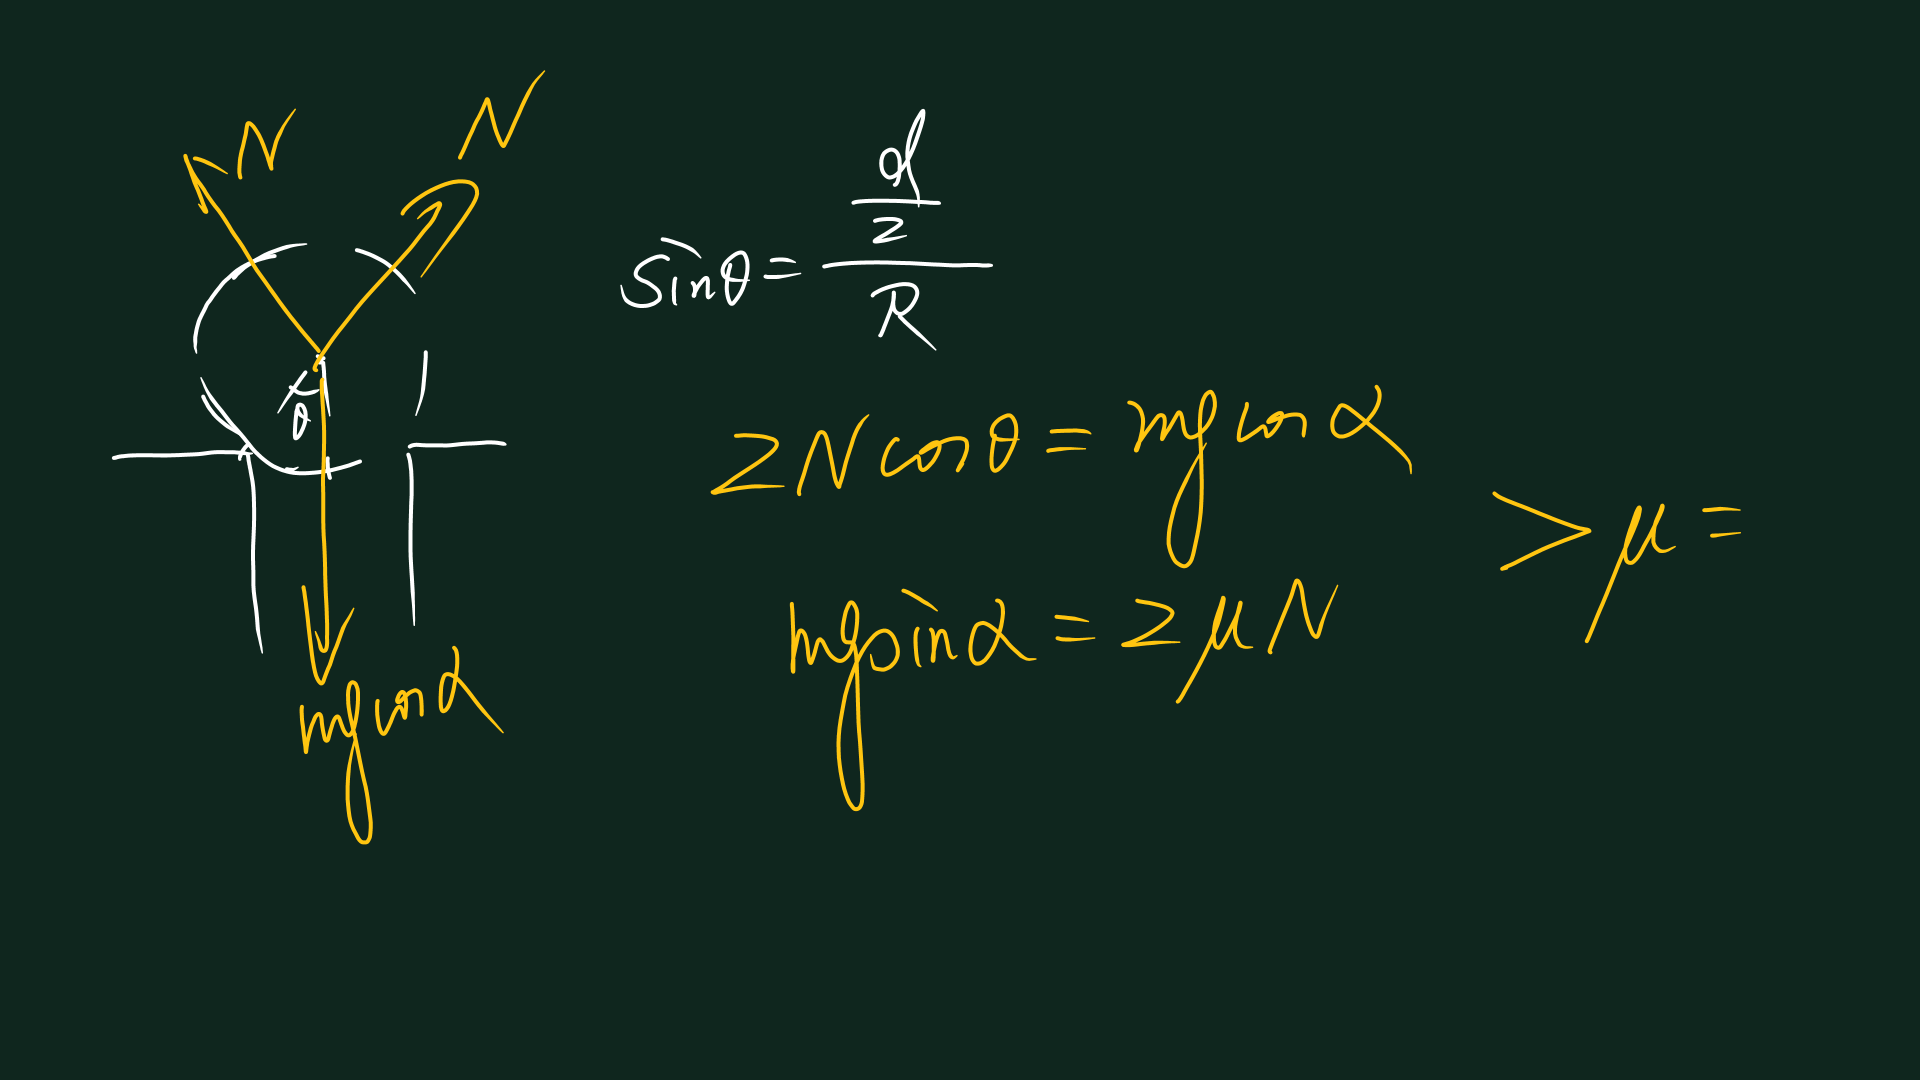 N
N
θ
mg cos α
sinθ = (d/2)/R
2N cosθ = mg cos α
mg sin α = 2μN
> μ =